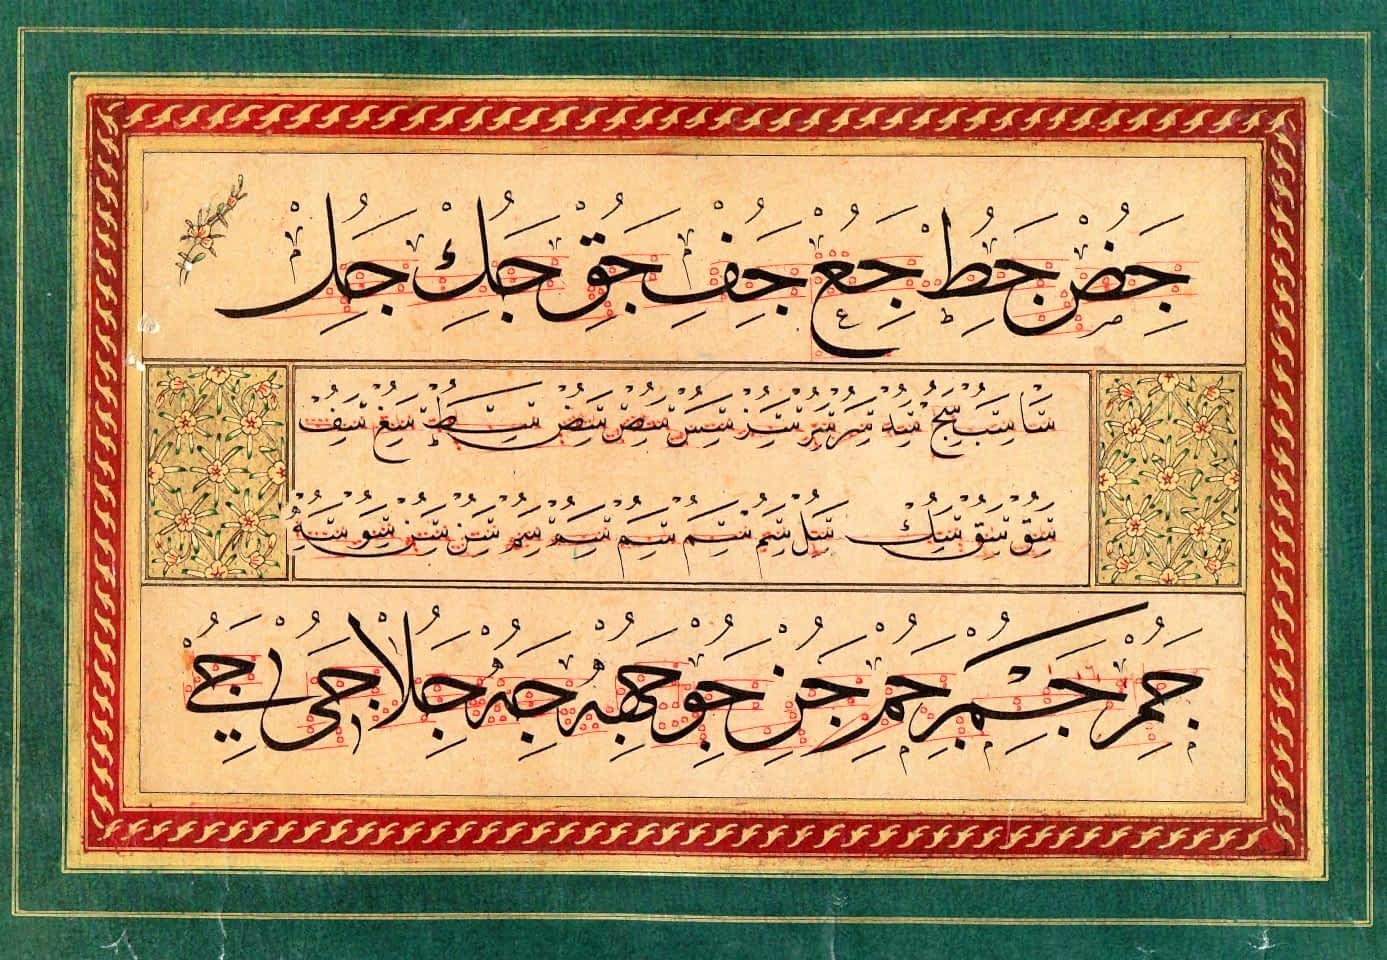 جض جط جع جف جق جك جل
سا سب سج سد سر سر سر سس سص سض سط سع سف
سق سق سك سل سم سم سم سم سم سن سن سو سه
جم جم جم جن جو جهه جه جلا جى جے